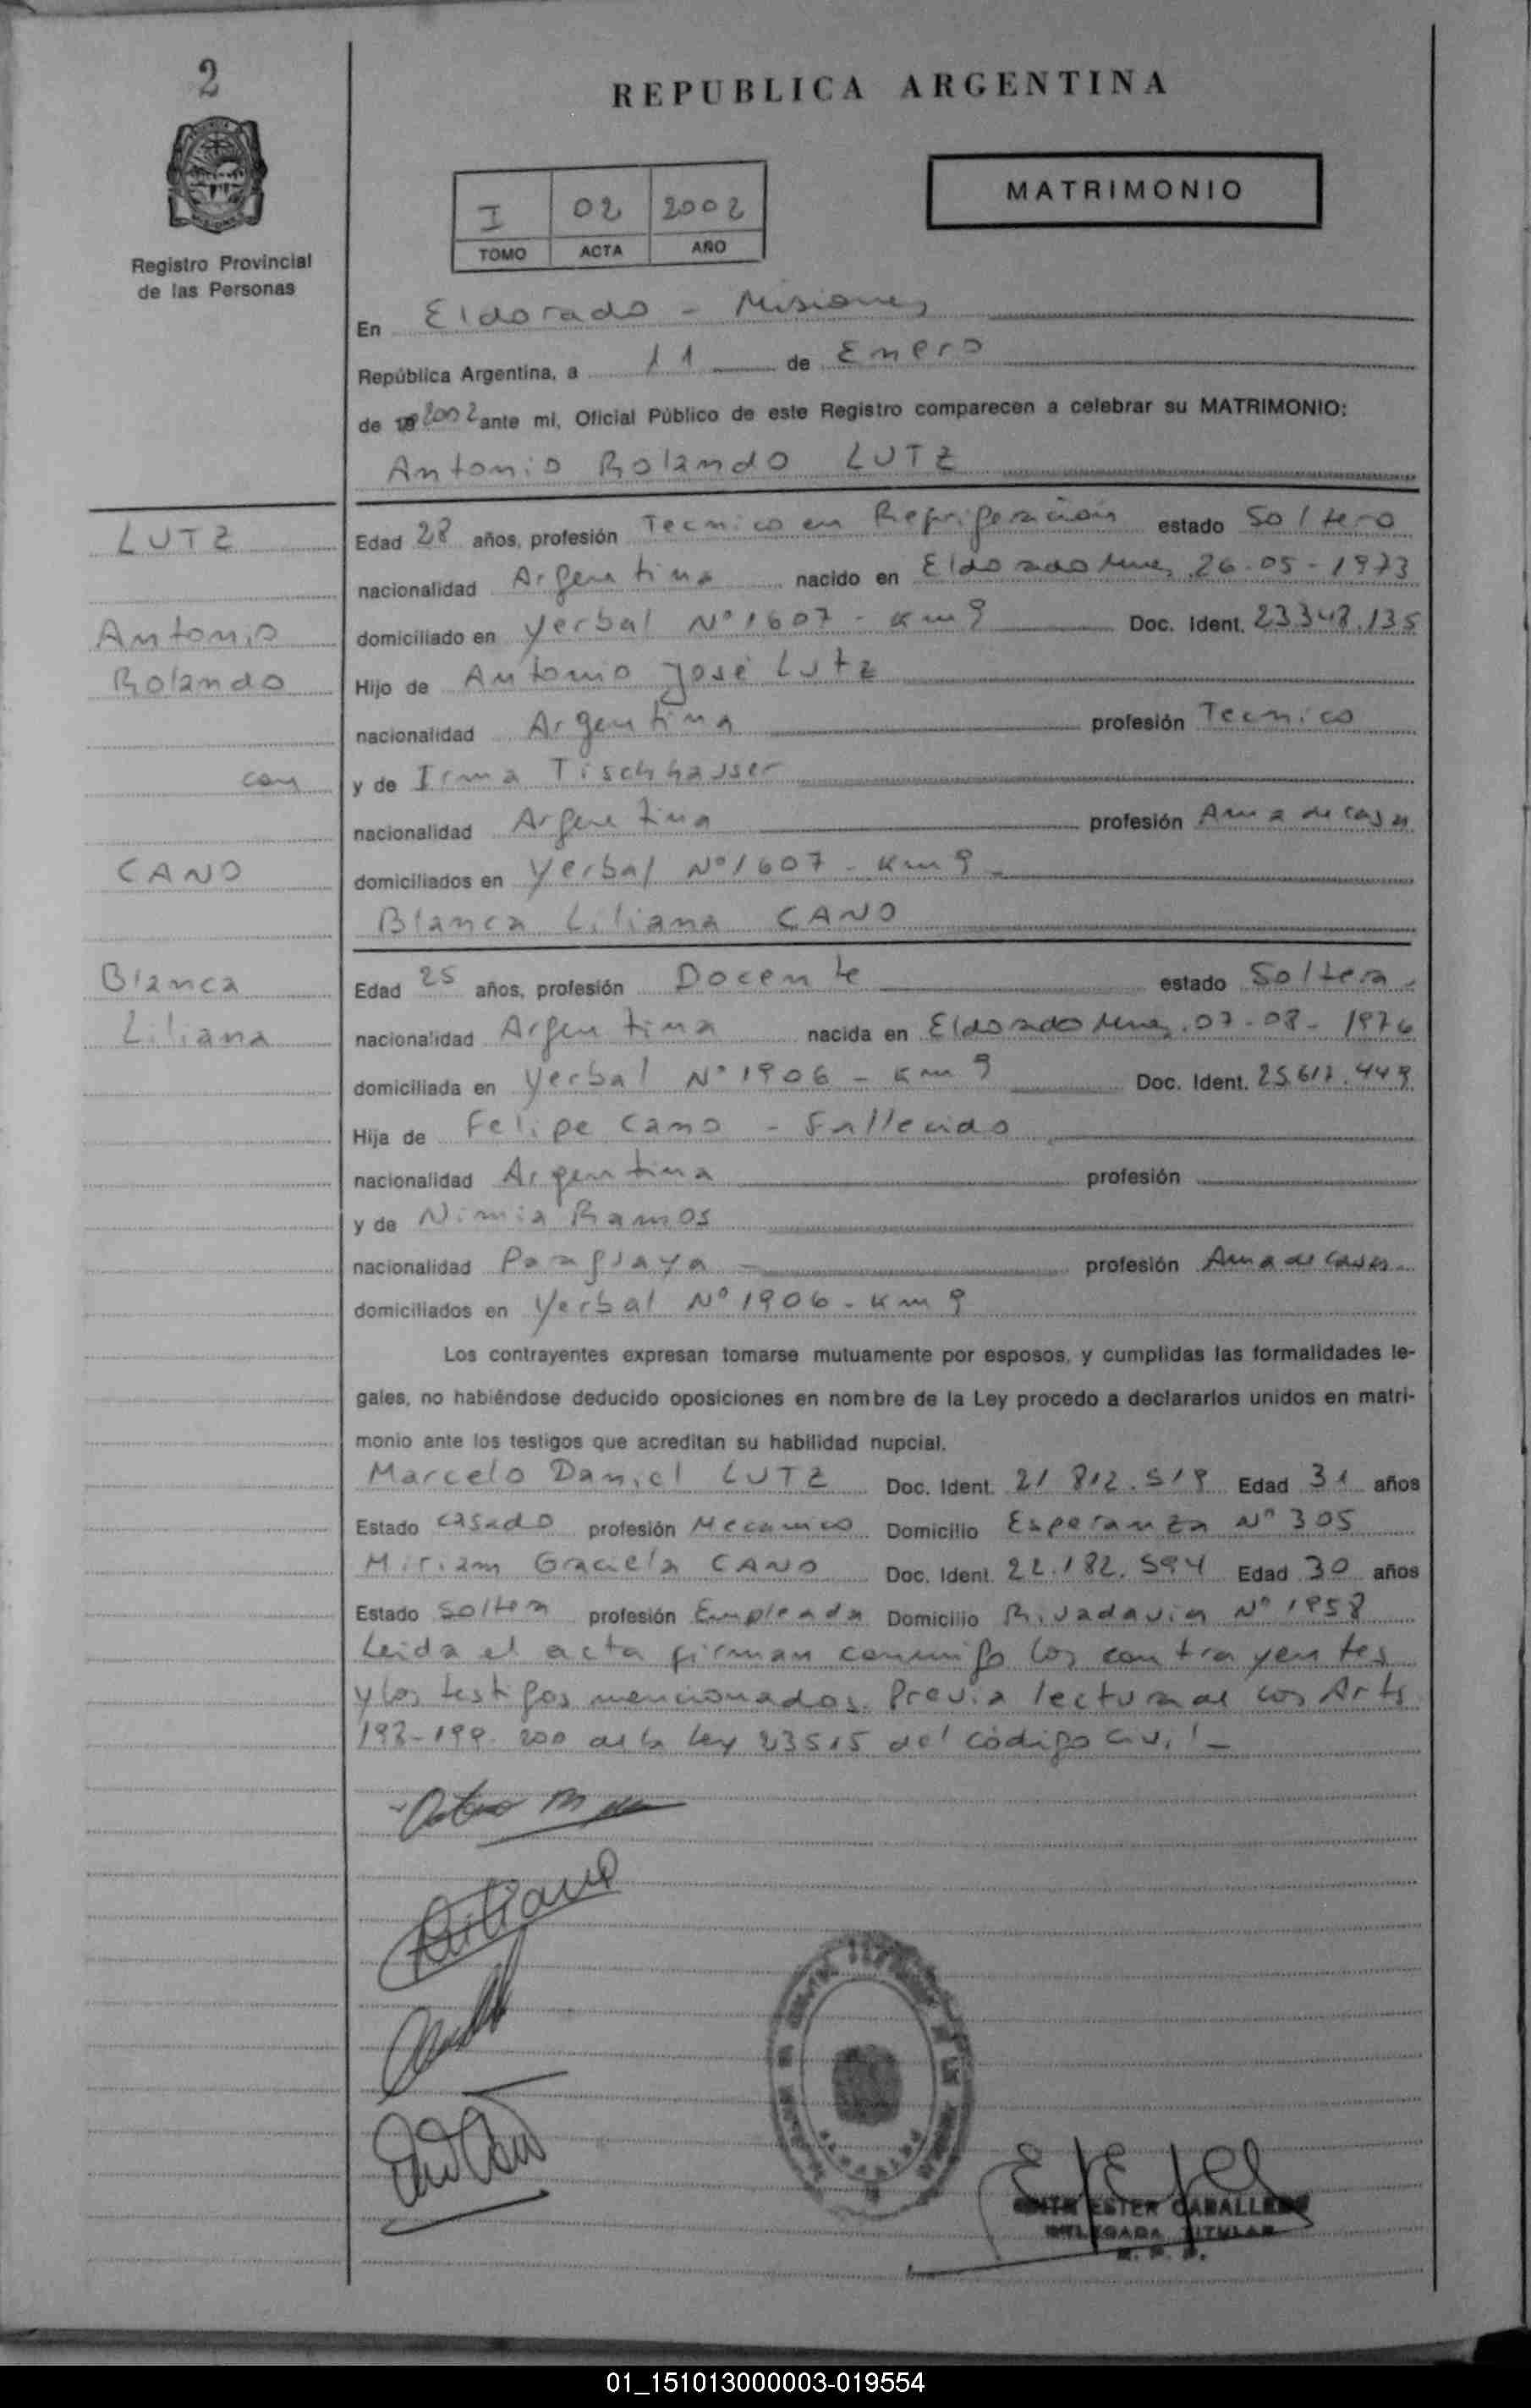 2
REPUBLICA ARGENTINA
MATRIMONIO
I 02 2002
TOMO ACTA AÑO
Registro Provincial
de las Personas
En Eldorado - Misiones
República Argentina, a 11 de Enero
de 19 2002 ante mi, Oficial Público de este Registro comparecen a celebrar su MATRIMONIO:
Antonio Rolando LUTZ
LUTZ
Edad 28 años, profesión Tecnico en Refrigeración estado Soltero
nacionalidad Argentina nacido en Eldorado Mnes, 26-05-1973
Antonio
domiciliado en Yerbal Nº 1607 - Km 9 Doc. Ident. 23.348.135
Rolando
Hijo de Antonio José Lutz
nacionalidad Argentina profesión Tecnico
con
y de Irma Tischhauser
nacionalidad Argentina profesión Ama de casa
CANO
domiciliados en Yerbal Nº 1607 - Km 9
Blanca Liliana CANO
Blanca
Edad 25 años, profesión Docente estado Soltera
Liliana
nacionalidad Argentina nacida en Eldorado Mnes, 07-08-1976
domiciliada en Yerbal Nº 1906 - Km 9 Doc. Ident.
Hija de Felipe Cano - Fallecido
nacionalidad Argentina profesión
y de Nimia Ramos
nacionalidad Paraguaya profesión Ama de casa
domiciliados en Yerbal Nº 1906 - Km 9
Los contrayentes expresan tomarse mutuamente por esposos, y cumplidas las formalidades le-
gales, no habiéndose deducido oposiciones en nombre de la Ley procedo a declararlos unidos en matri-
monio ante los testigos que acreditan su habilidad nupcial.
Marcelo Daniel LUTZ Doc. Ident. 21.812.519 Edad 31 años
Estado Casado profesión Mecanico Domicilio Esperanza Nº 305
Miriam Graciela CANO Doc. Ident. 22.182.594 Edad 30 años
Estado Soltera profesión Empleada Domicilio Rivadavia Nº 1958
Leida el acta firman conmigo los contrayentes
y los testigos mencionados. Previa lectura de los Arts
198-199-200 de la Ley 23515 del código civil -
Liliana
ESTER CABALLERO
DELEGADA TITULAR
01_151013000003-019554